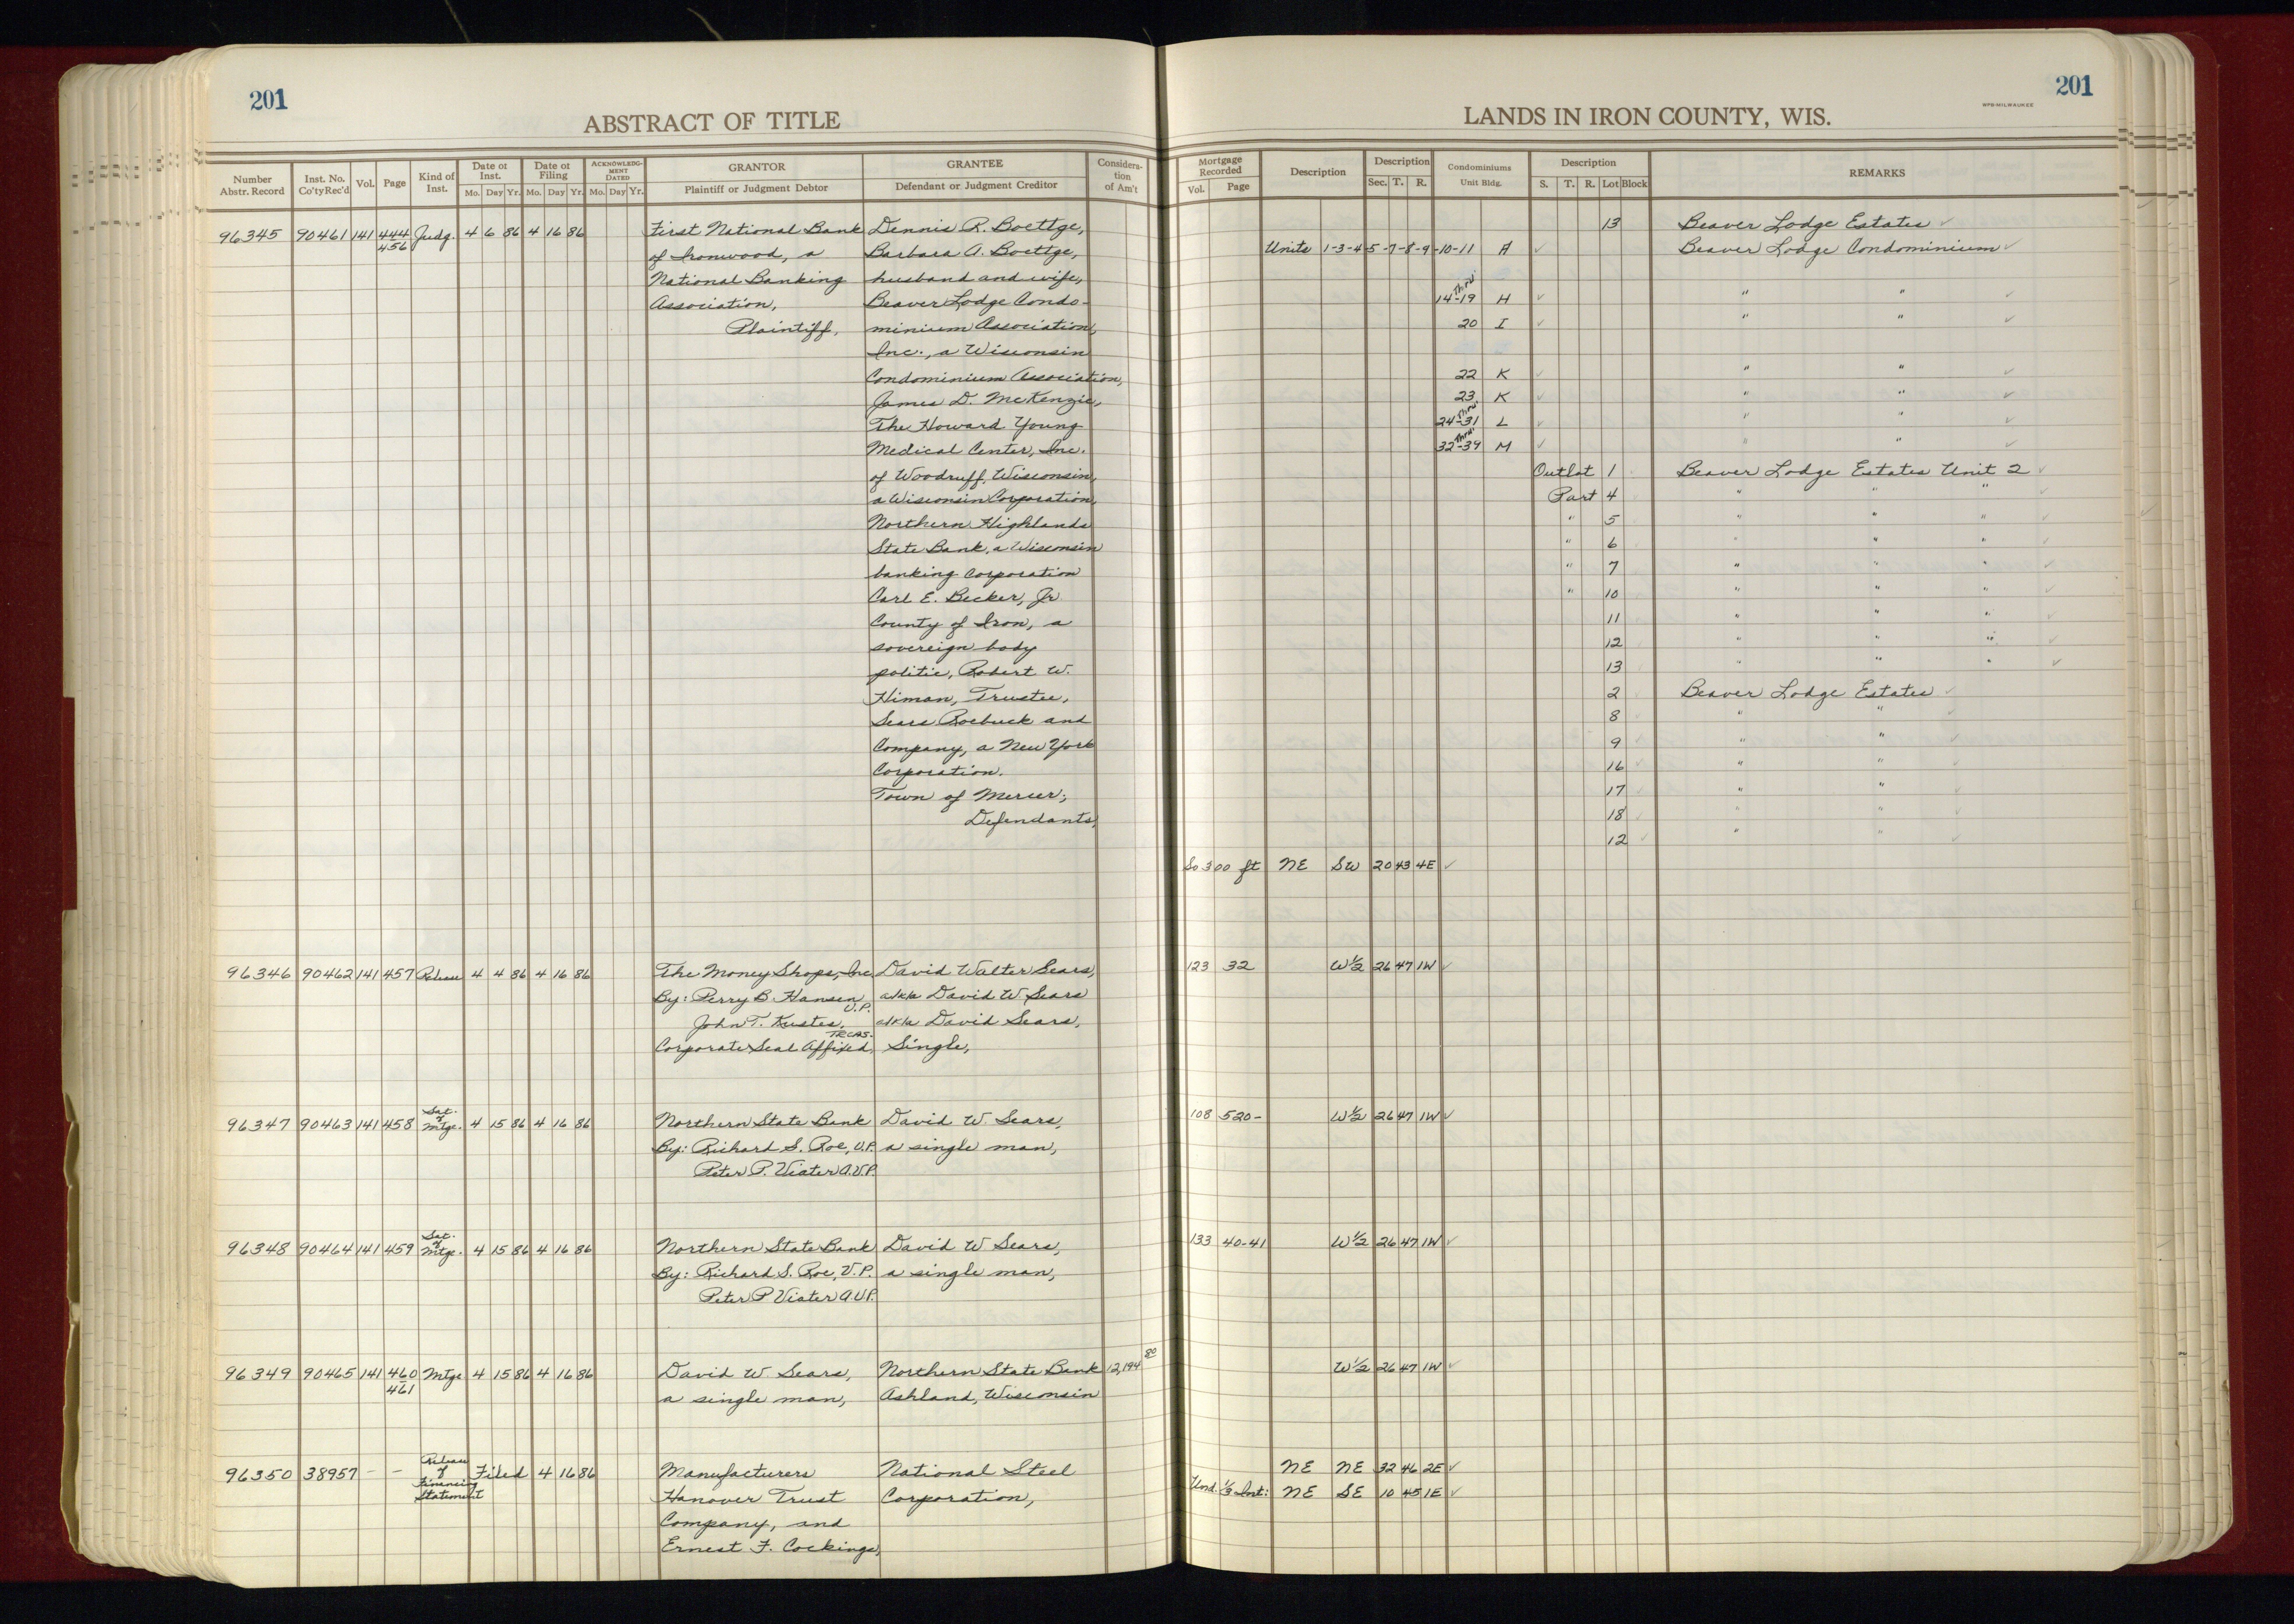 201
ABSTRACT OF TITLE
Number Abstr. Record | Inst. No. Co'ty Rec'd | Vol. | Page | Kind of Inst. | Date of Inst. Mo. Day Yr. | Date of Filing Mo. Day Yr. | ACKNOWLEDGMENT DATED Mo. Day Yr. | GRANTOR Plaintiff or Judgment Debtor | GRANTEE Defendant or Judgment Creditor | Consideration of Am't
96345 90461 141 444 Judg. 4 6 86 4 16 86 First National Bank Dennis R. Boettge,
456 of Ironwood, a Barbara A. Boettge,
National Banking husband and wife,
Association, Beaver Lodge Condo-
Plaintiff, minium Association,
Inc., a Wisconsin
Condominium Association,
James D. McKenzie,
The Howard Young
Medical Center, Inc.
of Woodruff, Wisconsin,
a Wisconsin Corporation,
Northern Highlands
State Bank, a Wisconsin
banking corporation
Carl E. Becker, Jr.
County of Iron, a
sovereign body
politic, Robert W.
Himan, Trustee,
Sears Roebuck and
Company, a New York
Corporation.
Town of Mercer;
Defendants,
96346 90462 141 457 Release 4 4 86 4 16 86 The Money Shops, Inc David Walter Sears,
By: Perry B. Hansen V.P. a/k/a David W. Sears
John T. Kustes, TREAS. a/k/a David Sears,
Corporate Seal Affixed, Single,
96347 90463 141 458 Sat. of Mtge. 4 15 86 4 16 86 Northern State Bank David W. Sears,
By: Richard S. Roe, V.P. a single man,
Peter P. Viater A.V.P.
96348 90464 141 459 Sat. of Mtge. 4 15 86 4 16 86 Northern State Bank David W Sears,
By: Richard S. Roe, V.P. a single man,
Peter P Viater A.V.P.
96349 90465 141 460 Mtge 4 15 86 4 16 86 David W Sears, Northern State Bank 12,194 80
461 a single man, Ashland, Wisconsin
96350 38957 - - Release of Financing Statement Filed 4 16 86 Manufacturers National Steel
Hanover Trust Corporation,
Company, and
Ernest F. Cockings,
201
WPB-MILWAUKEE
LANDS IN IRON COUNTY, WIS.
Mortgage Recorded Vol. Page | Description | Description Sec. T. R. | Condominiums Unit Bldg. | Description S. T. R. Lot Block | REMARKS
13 Beaver Lodge Estates ✓
Units 1-3-4-5-7-8-9-10-11 A ✓ Beaver Lodge Condominium ✓
14 thru -19 H ✓ " " ✓
20 I ✓ " " ✓
22 K ✓ " " ✓
23 K ✓ " " ✓
24 thru -31 L ✓ " " ✓
32 thru -39 M ✓ " " ✓
Outlot 1 Beaver Lodge Estates Unit 2 ✓
Part 4 " " " ✓
" 5 " " " ✓
" 6 " " " ✓
" 7 " " " ✓
" 10 " " " ✓
11 " " " ✓
12 " " " ✓
13 " " " ✓
2 Beaver Lodge Estates ✓
8 " " ✓
9 " " ✓
16 " " ✓
17 " " ✓
18 " " ✓
12 " " ✓
So 300 ft NE SW 20 43 4E ✓
123 32 W½ 26 47 1W ✓
108 520- W½ 26 47 1W ✓
133 40-41 W½ 26 47 1W ✓
W½ 26 47 1W ✓
NE NE 32 46 2E ✓
Und. ⅓ Int: NE SE 10 45 1E ✓